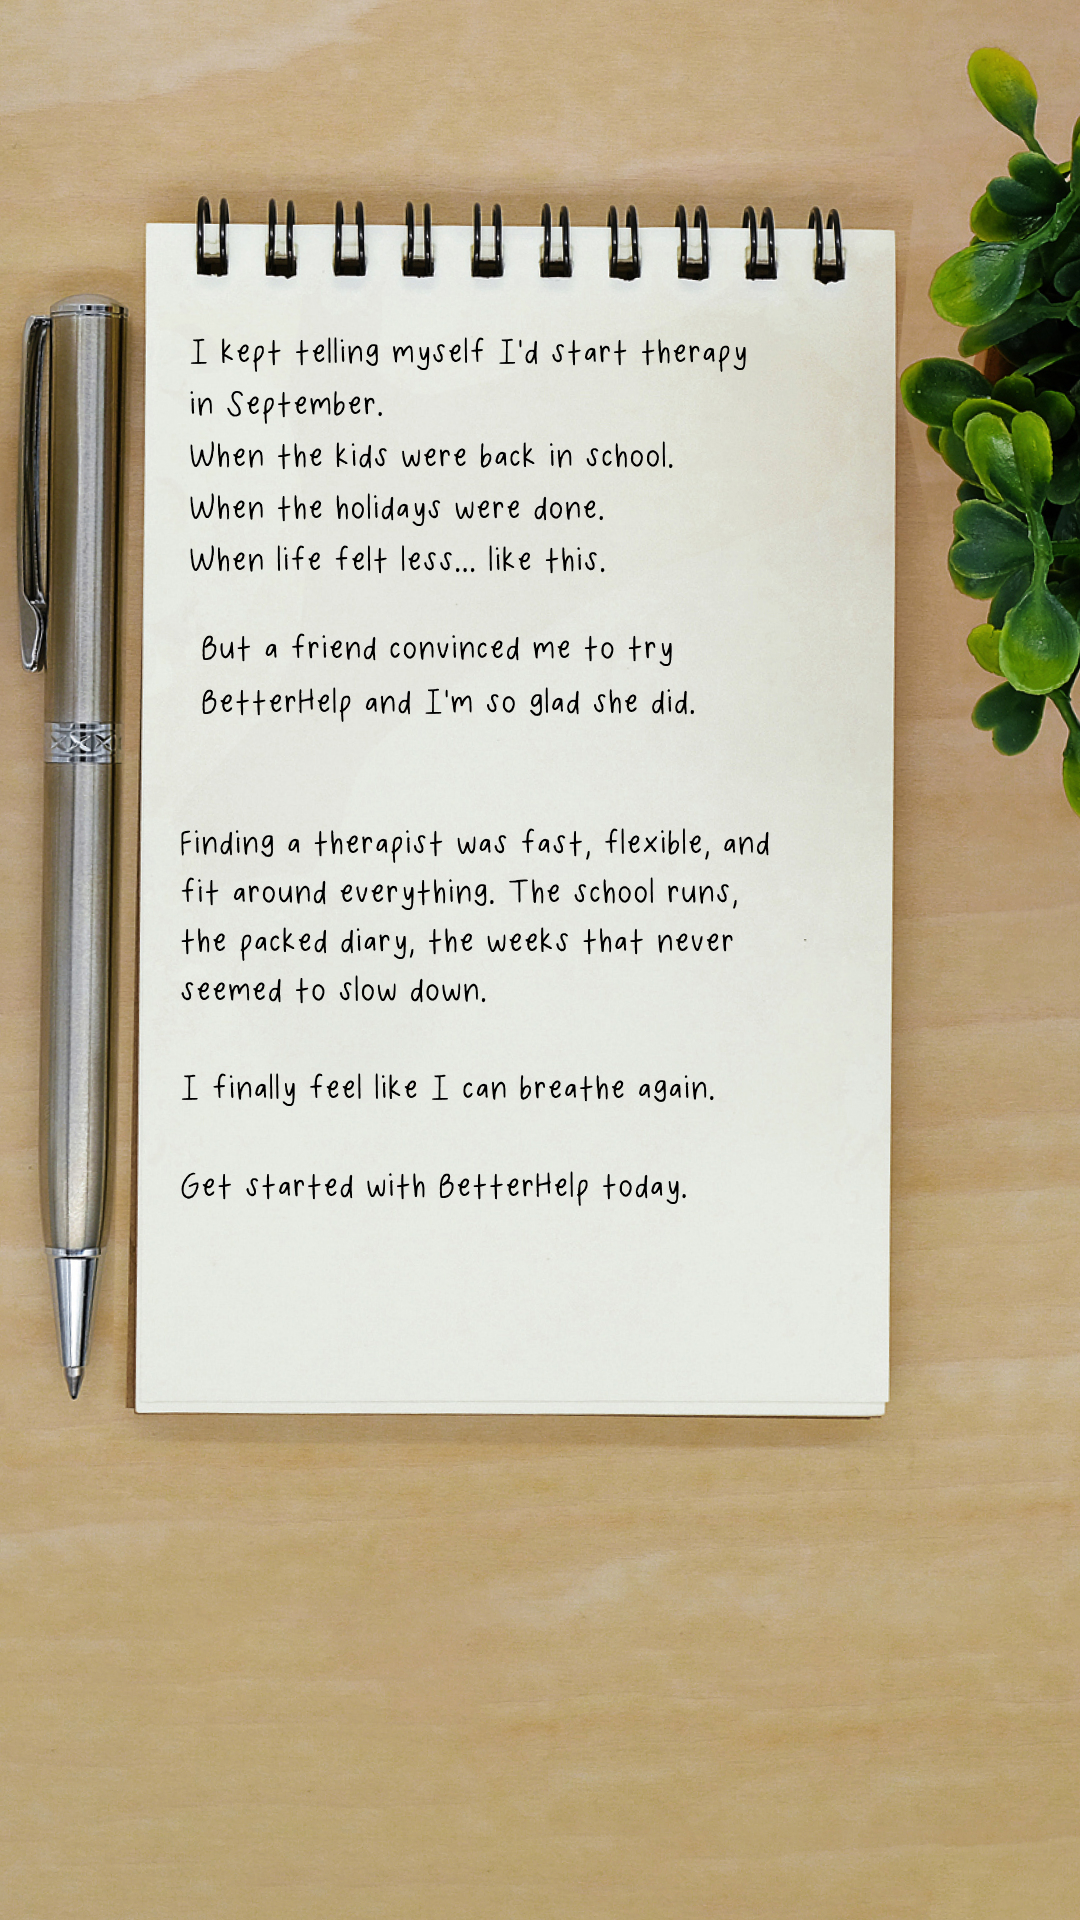 I kept telling myself I'd start therapy
in September.
When the kids were back in school.
When the holidays were done.
When life felt less... like this.
But a friend convinced me to try
BetterHelp and I'm so glad she did.
Finding a therapist was fast, flexible, and
fit around everything. The school runs,
the packed diary, the weeks that never
seemed to slow down.
I finally feel like I can breathe again.
Get started with BetterHelp today.